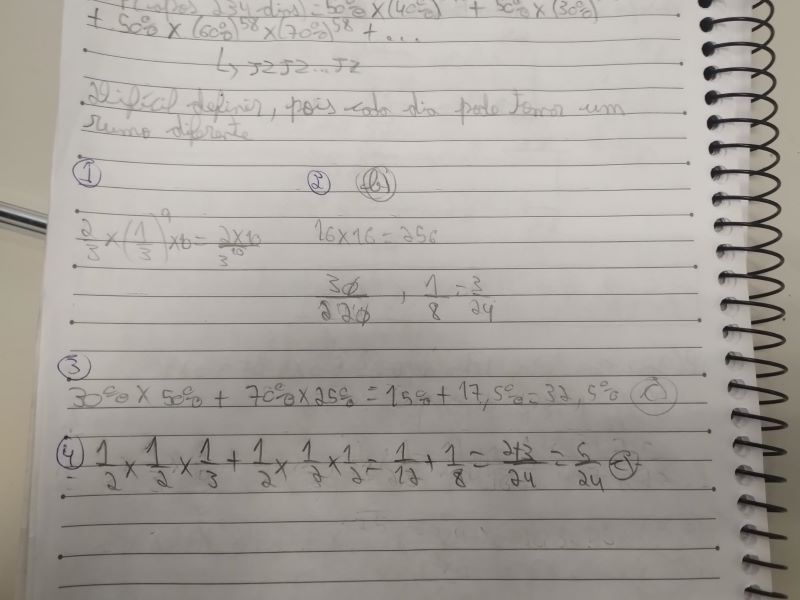 P( 234 dias) = 50% x (40%) + 50% x (30%)
+ 50% x (60%)^58 x (70%)^58 + ...
↳ JZJZ...JZ
Difícil definir, pois cada dia pode tomar um
rumo diferente
1
2/3 x (1/3)^9 x 10 = 2x10/3^10
2 (b)
16x16 = 256
30/220 , 1/8 = 3/24
3
30% x 50% + 70% x 25% = 15% + 17,5% = 32,5% C
4 1/2 x 1/2 x 1/3 + 1/2 x 1/2 x 1/2 = 1/12 + 1/8 = 2+3/24 = 5/24